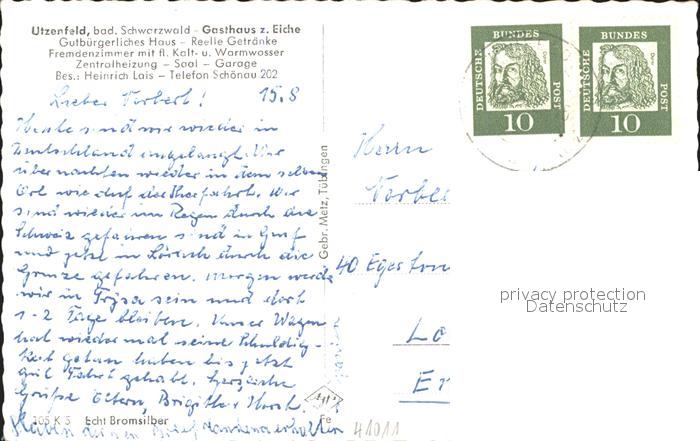 Utzenfeld, bad. Schwarzwald - Gasthaus z. Eiche
Gutbürgerliches Haus - Reelle Getränke
Fremdenzimmer mit fl. Kalt- u. Warmwasser
Zentralheizung - Saal - Garage
Bes.: Heinrich Lais - Telefon Schönau 202
Lieber Norbert! 15.8
Heute sind wir wieder in
Deutschland angelangt. Wir
übernachten wieder in dem selben
Ort wie auf der Herfahrt. Wir
sind wieder im Regen durch die
Schweiz gefahren sind in Genf
und jetzt in Lörrach durch die
Grenze gefahren. Morgen werden
wir in Trysa sein und dort
1-2 Tage bleiben. Unser Wagen
hat wieder mal seine Schuldig-
keit getan haben bis jetzt
gut Fahrt gehabt. Herzliche
Grüße Eltern, Brigitte + Horst.
Haben deinen Brief dankend erhalten
105 K 5 Echt Bromsilber Fe
Gebr. Metz, Tübingen
DEUTSCHE BUNDES POST
10
DEUTSCHE BUNDES POST
10
Herrn
Norbe
40 Egerton
Lo
E
privacy protection
Datenschutz
41011